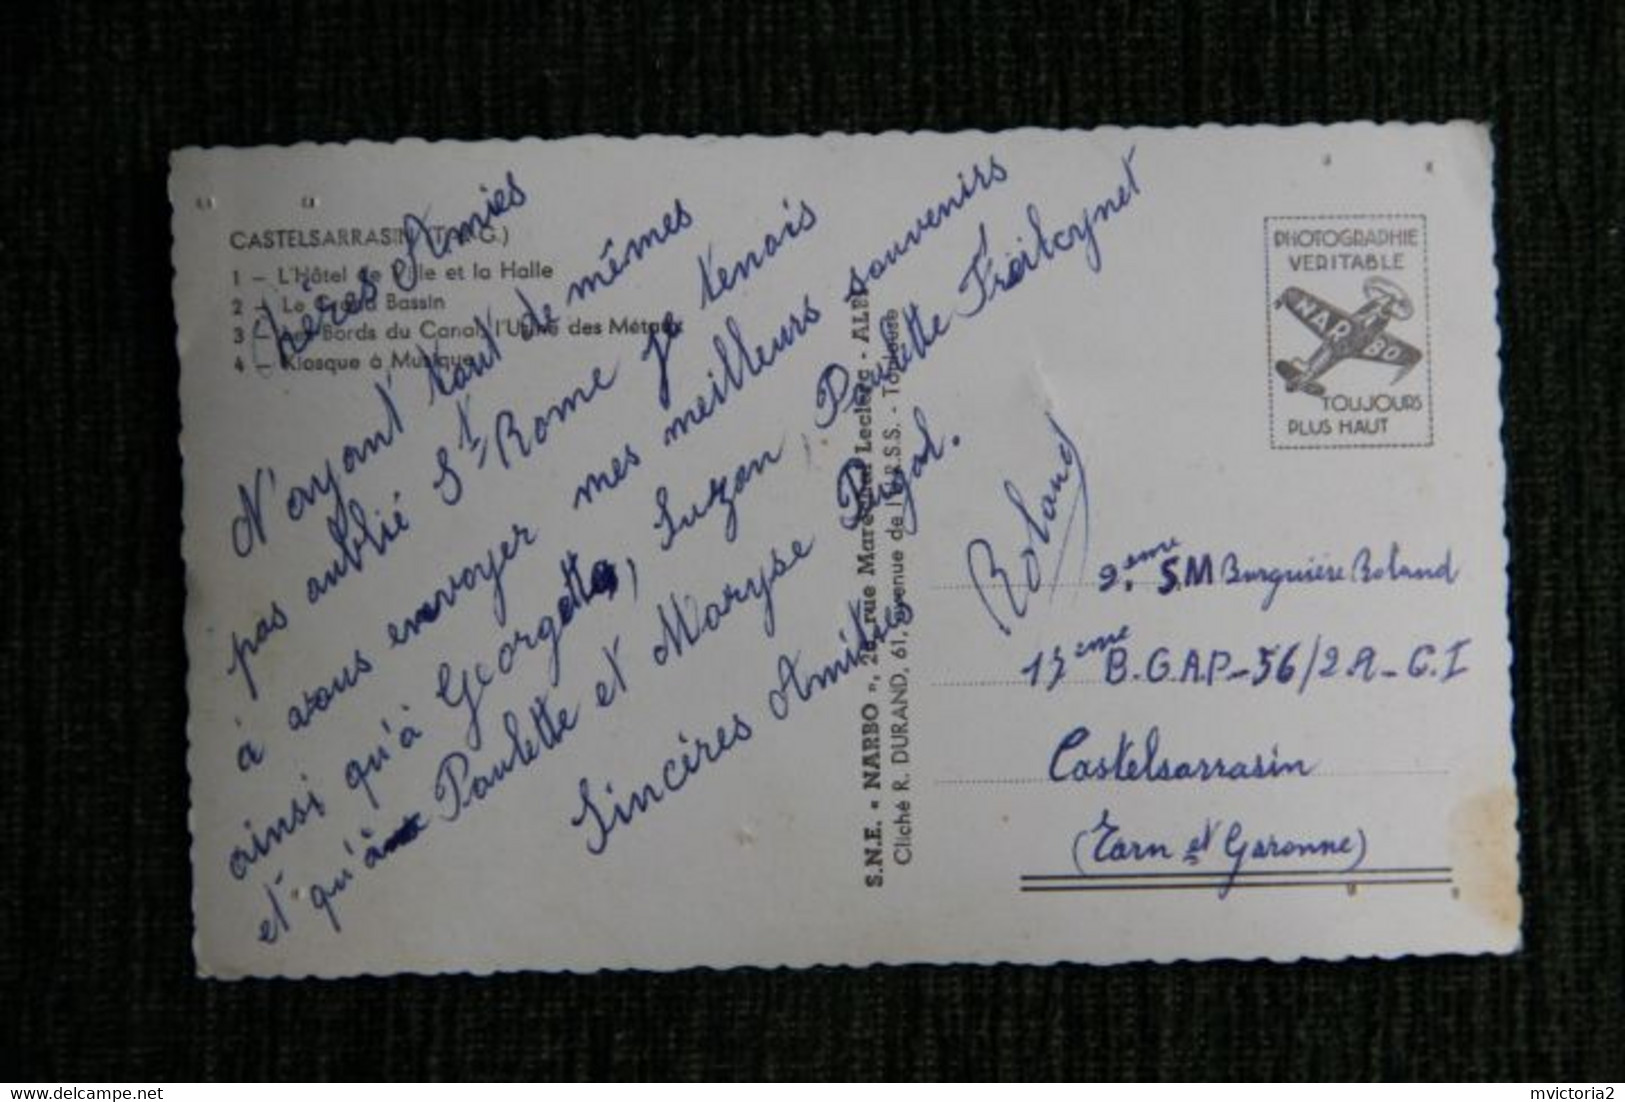 CASTELSARRASIN (T. & G.)
1 - L'Hôtel de Ville et la Halle
2 - Le Grand Bassin
3 - Les Bords du Canal, l'Usine des Métaux
4 - Kiosque à Musique
Chères Amies
N'ayant tout de mêmes
pas oublié St Rome je tenais
à vous envoyer mes meilleurs souvenirs
ainsi qu'à Georgette, Suzan, Paulette
et qu'à Paulette et Maryse Pujol.
Sincères Amitiés
Roland
S.N.E. « NARBO », rue Maréchal Leclerc - ALBI
Cliché R. DURAND, 61, avenue de l'U.R.S.S. - Toulouse
PHOTOGRAPHIE
VERITABLE
NARBO
TOUJOURS
PLUS HAUT
2.ème S.M Burguière Roland
13ème B.G.A.P-56/2.A-C.I
Castelsarrasin
(Tarn et Garonne)
mvictoria2